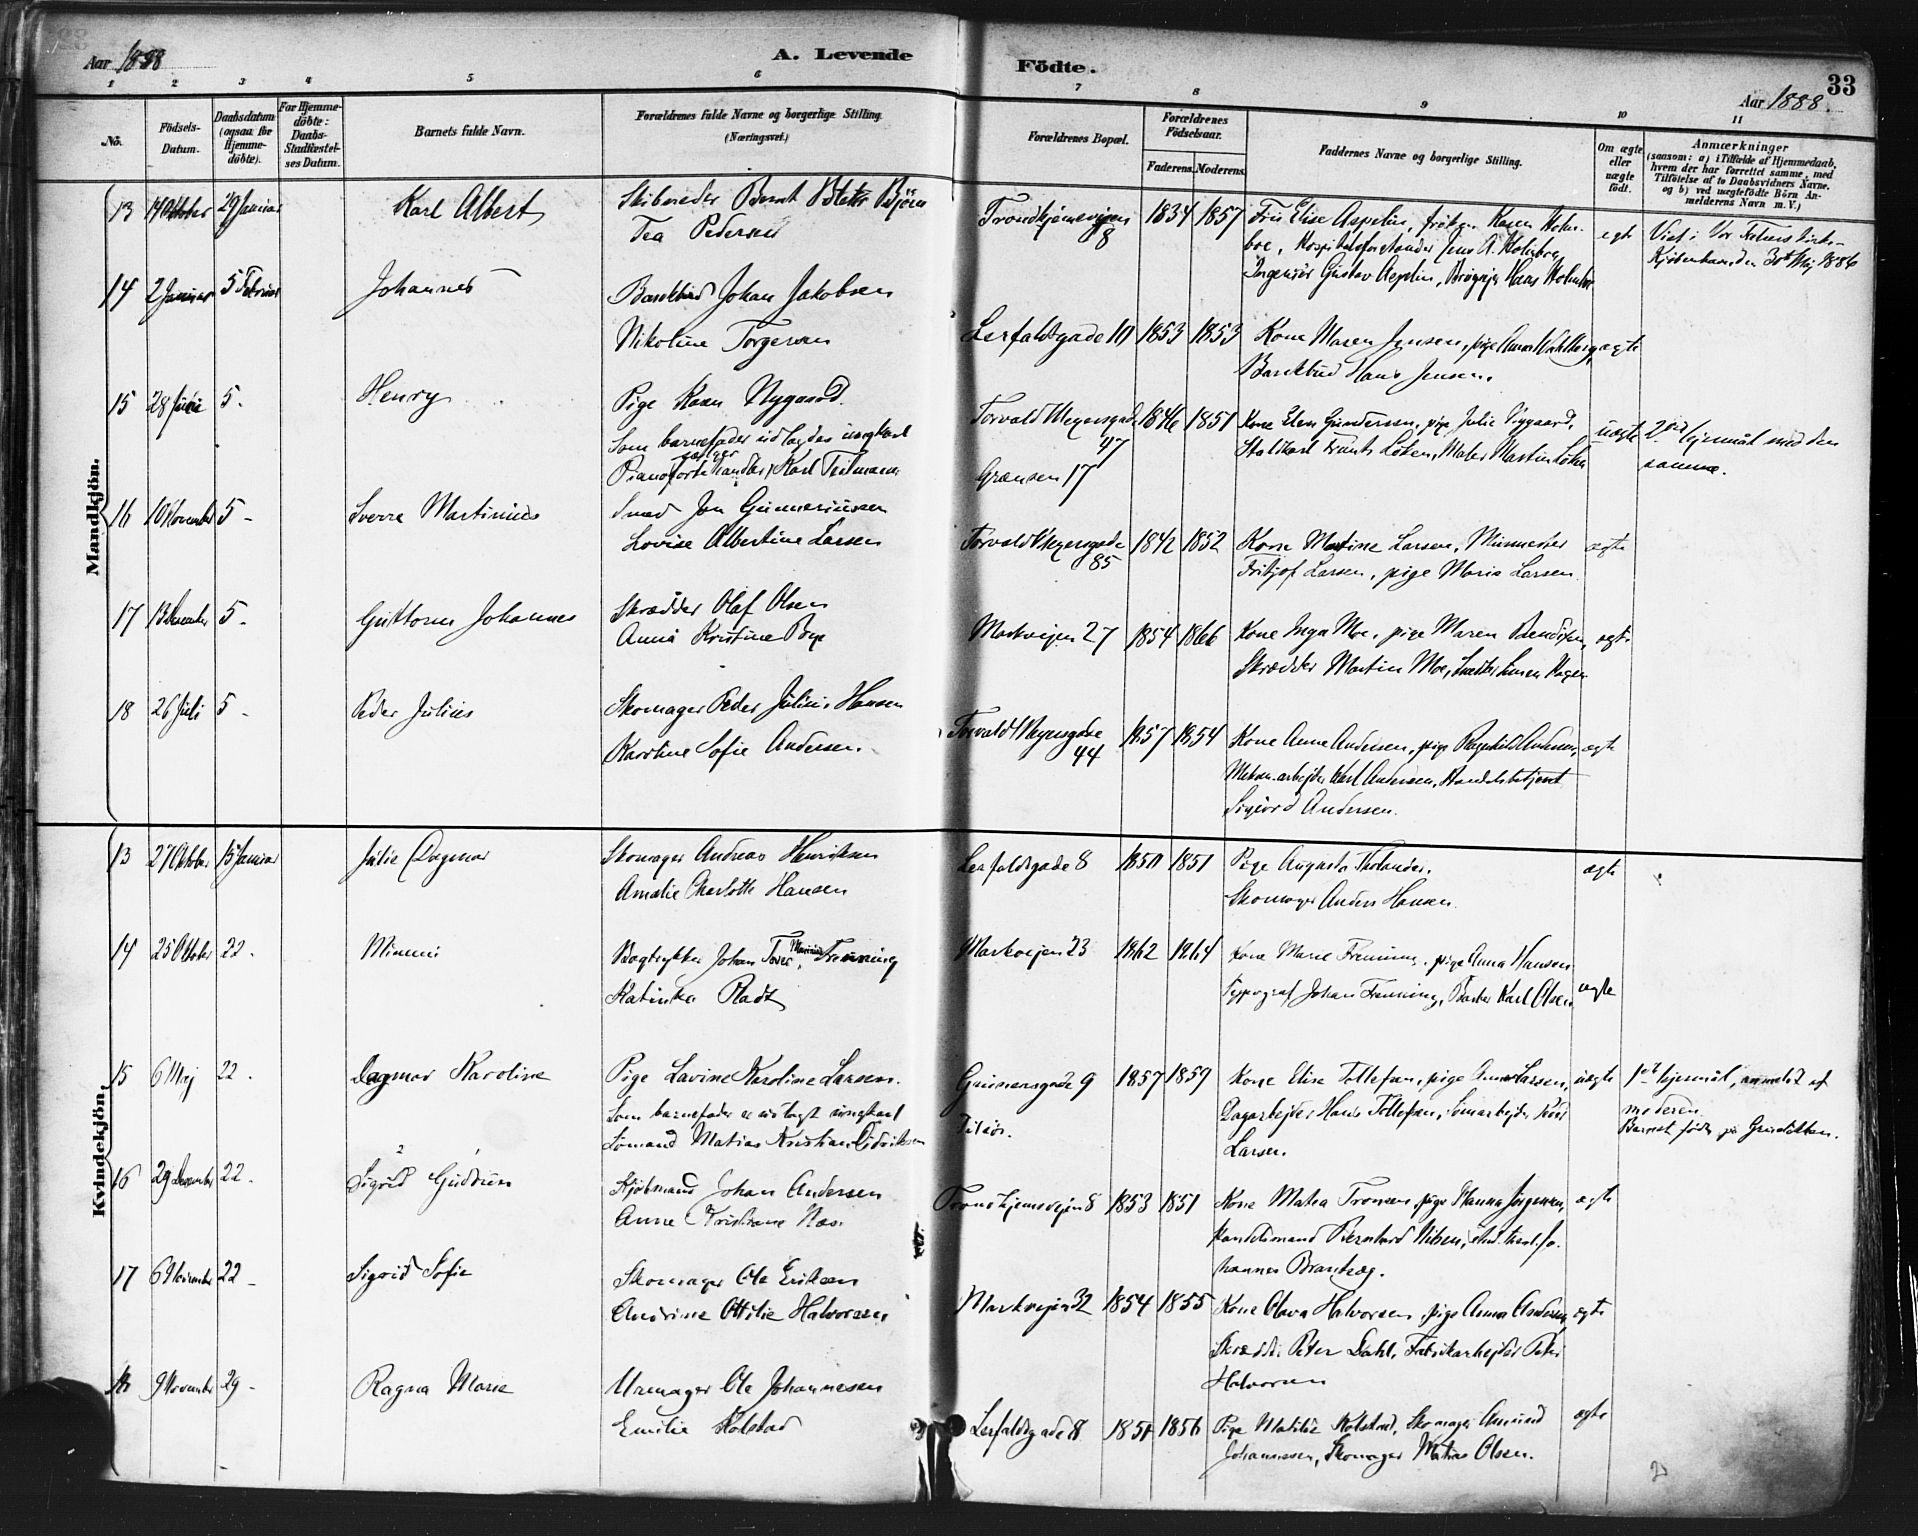 Aar 1888
A. Levende
Födte.
33
Aar 1888.
1 2 3 4 5 6 7 8 9 10 11
No.
Födsels-Datum.
Daabsdatum (ogsaa for Hjemmedöbte).
For Hjemmedöbte: Daabs-Stadfæstelses Datum.
Barnets fulde Navn.
Forældrenes fulde Navne og borgerlige Stilling. (Næringsvei.)
Forældrenes Bopæl.
Forældrenes Födselsaar.
Faderens. Moderens.
Faddernes Navne og borgerlige Stilling.
Om ægte eller uægte födt.
Anmærkninger
(saasom: a) i Tilfælde af Hjemmedaab, hvem der har forrettet samme, med Tilföielse af to Daabsvidners Navne, og b) ved uægtefödte Börn Anmelderens Navn m. V.)
Mandkjön.
13 14 Oktober 29 Januar Karl Albert
Skibsreder Bernt Björn
Tea Pedersen
Trondhjemsvejen 8 1834 1857
Fru Elise Aspelin, fröken Karen Holmboe, Hospitalsforstander Jens A. Holmboe,
Ingeniör Gustav Aspelin, Hans Holmboe
egte
Viet i Vor Frelsers Kirke Kjöbenhavn den 30te Maj 1886
14 2 Januar 5 Februar Johannes
Bankbud Johan Jakobsen
Nikoline Torgersen
Lerfaldsgade 10 1853 1853
Kone Maren Jensen, pige Anna Wahlberg,
Bankbud Hans Jensen.
ægte
15 28 Juni 5. Henry
Pige Karen Nygaard.
Som barnefader udlagdes ungkarl
Pianofortehandler Karl
Torvald Meyersgade 47 1846 1851
Grænsen 17
Kone Elen Gundersen, pige Julie Nygaard,
Staldkarl Frants Löken, Maler Martin Löken
uægte
2det lejermål med den samme.
16 10 November 5 - Sverre Martinius
Smed Jon Gunneriussen
Lovise Albertine Larsen
Torvald Meyersgade 85 1842 1852
Kone Martine Larsen, Murmester
Fritjof Larsen, pige Marie Larsen
ægte
17 13 December 5 - Guttorm Johannes
Skrædder Olaf Olsen
Anna Kristine Bye
Markvejen 27 1854 1866
Kone Inga Moe, pige Maren Bendixen,
Skrædder Martin Moe,
ægte
18 26 Juli 5 - Peder Julius
Skomager Peder Julius Hansen
Karoline Sofie Andersen.
Torvald Meyersgade 44 1857 1854
Kone Anne Andersen, pige Ragnhild Andersen,
arbejder Karl Andersen, Handelsbetjent
Sigurd Andersen.
ægte
Kvindekjön.
13 27 Oktober 15 Januar Julie Dagmar
Skomager Andreas Henriksen
Amalie Charlotte Hansen
Lerfaldsgade 8 1850 1851
Pige Augusta
Skomager Anders Hansen
ægte
14 25 Oktober 22. Mimmi
Bogtrykker Johan Frenning
Katinka Radt
Markvejen 23 1862 1864
Kone Marie Frenning, pige Anna Hansen
Typograf Johan Frenning, Karl Olsen.
ægte
15 6 Maj 22. Dagmar Karoline
Pige Lavine Karoline Larsen.
Som barnefader er udlagt ungkarl
Sömand Matias Kristian Didriksen
Gunnersgade 9 1857 1859
Kone Elise Tollefsen, pige Anna Larsen,
Dagarbejder Hans Tollefsen,
Larsen.
uægte
1ste lejermål, anmeldt af moderen.
Barnet födt på
16 29 December 22. Sigrid Gudrun
2 1
Kjöbmand Johan Andersen
Anne Kristiane Næs
Trondhjemsvejen 8 1853 1851
Kone Matea Tronsen, pige Hanna Jörgensen,
Handelsmand Bernhard Nilsen, Johannes
ægte
17 6 November 22 - Sigrid Sofie
Skomager Ole Eriksen
Andrine Ottilie Halvorsen
Markvejen 32 1854 1855
Kone Olava Halvorsen, pige Anna Andersen,
Skrædder Peter Dahl, Fabrikarbejder Peter
Halvorsen
ægte
18 9 November 29 - Ragna Marie
Urmager Ole Johannesen
Emilie Kolstad
Lerfaldsgade 8 1851 1856
Pige Matilde Kolstad, Skomager Amund
Johannessen, Skomager Matias Olsen.
ægte